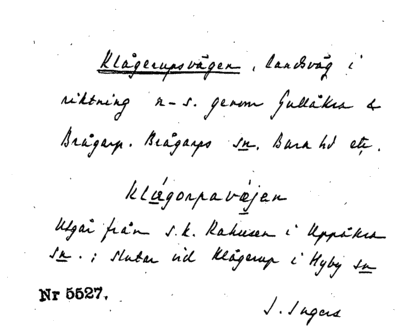 Klågerupsvägen, landsväg i
riktning n-s. genom Gullåkra &
Brågarp. Brågarps sn. Bara hd etc.
Klågorpavæjan
Utgår från s.k. i Uppåkra
sn.; slutar vid Klågerup i Hyby sn
Nr 5527.
J. Ingers